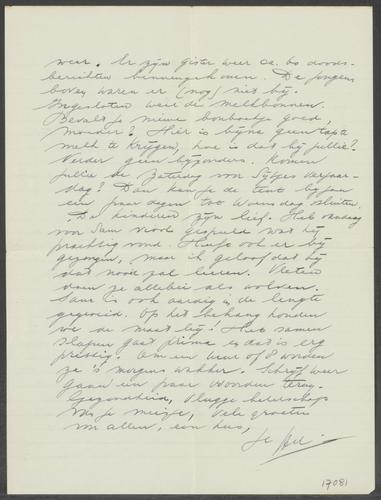 weer. Er zijn gister weer ca. 60 doods-
berichten binnengekomen. De jongens
boven waren er (nog) niet bij.
Ingesloten weer de melkbonnen.
Bevalt je nieuwe bonboekje goed,
moeder? Hier is bijna geen tapte
melk te krijgen, hoe is dat bij jullie?
Verder geen bijzonders. Komen
jullie de Zaterdag voor verjaar-
dag? Dan kan je de tent bijaan
een paar dagen tot Woensdag sluiten.
De kinderen zijn lief. Heb vandaag
voor Sam viool gespeeld wat hij
prachtig vond. Heeft ook er bij
gezongen, maar ik geloof dat hij
dat nooit zal leeren. Vreten
doen ze allebei als wolven.
Sam is ook aardig in de lengte
gegroeid. Op het behang houden
we de maat bij! Het samen
slapen gaat prima en dat is erg
prettig. Om een uur of 8 worden
ze 's morgens wakker. Schrijf weer
gauw een paar woorden terug.
Gezondheid, vlugge beterschap
met je meisje, vele groeten
van allen, een kus,
Je
17081